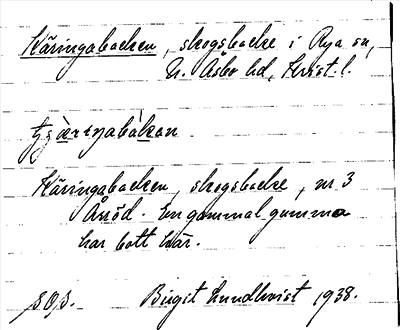 Käringabacken, skogsbacke i Rya sn,
N. Åsbo hd, Krist. l.
Käringabacken, skogsbacke, nr 3
Årröd. En gammal gumma
har bott här.
S.O.S. Birgit Lundkvist 1938.